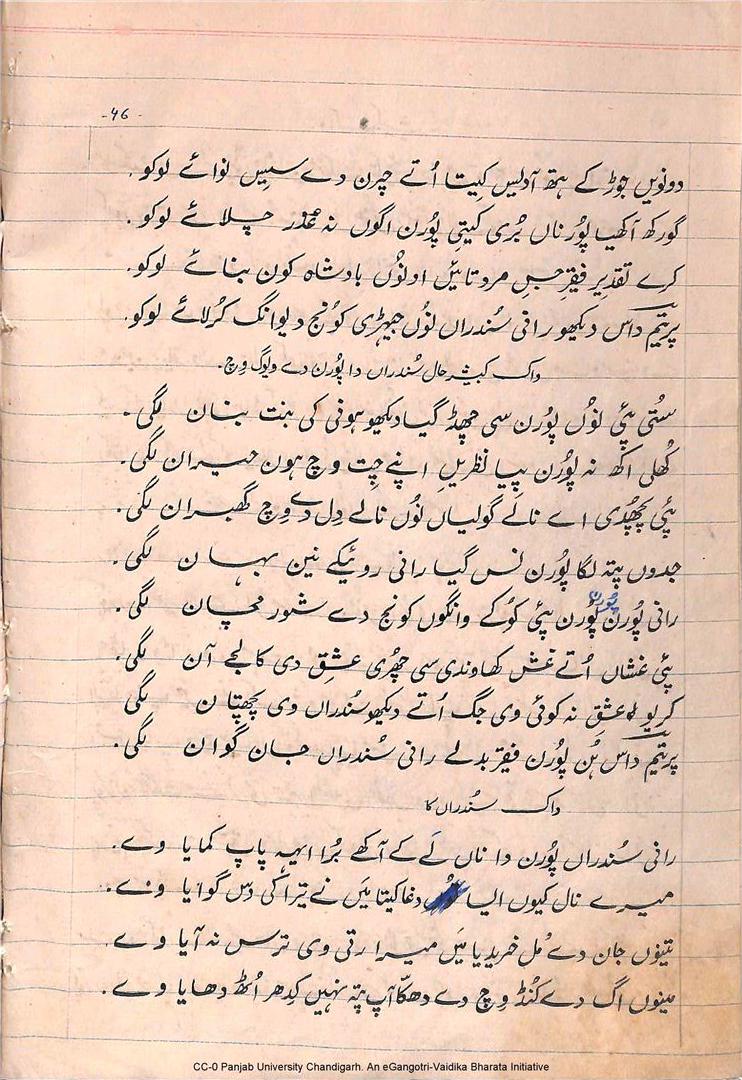 -46-
دونویں جوڑ کے ہتھ آدیس کیتا اُتے چرن دے سیس نوائے لوکو۔
گورکھ آکھیا پُورناں بُری کیتی پُورن اگوں نہ عُذر چلائے لوکو۔
کرے تقدیر فقیر جس مرو تائیں اونوُں بادشاہ کون بنائے لوکو۔
پریتم داس دیکھو رانی سُندراں نوُں جیہڑی کوُنج دیوانگ کُرلائے لوکو۔
واک کبیشر حال سُندراں دا پُورن دے ویوگ وچ۔
سُتی پئی نوُں پُورن سی چھڈ گیا دیکھو ہونی کی بنت بنان لگی۔
کُھلی اکھ نہ پُورن پیا نظریں اپنے چِت وچ ہون حیران لگی۔
پئی پچُھدی اے نالے گولیاں نوُں نالے دِل دے وِچ گھبران لگی۔
جدوں پتہ لگا پُورن نس گیا رانی روئیکے نین بہان لگی۔
رانی پُورن پُورن پئی کوُکے وانگوں کونج دے شور مچان لگی۔
پئی غشاں اُتے غش کھاوندی سی چھُری عشِق دی کالجے آن لگی۔
کریو عشِق نہ کوئی وی جگ اُتے دیکھو سُندراں وی پچھتان لگی
پریتم داس ہُن پُورن فقیر بدلے رانی سُندراں جان گوان لگی۔
واک سُندراں کا
رانی سُندراں پُورن دا ناں لَے کے آکھے بُرا ایہہ پاپ کمایا وے۔
میرے نال کیوں ایسا دغا کیتا مَیں نے تیرا کی دس گوایا وے۔
تینوں جان دے مُل خریدیا مَیں میرا رتی وی ترس نہ آیا وے۔
مینوں اگ دے کُنڈ وِچ دے دھکّا آپ پتہ نہیں کِدھر اُٹھ دھایا وے۔
CC-0 Panjab University Chandigarh. An eGangotri-Vaidika Bharata Initiative